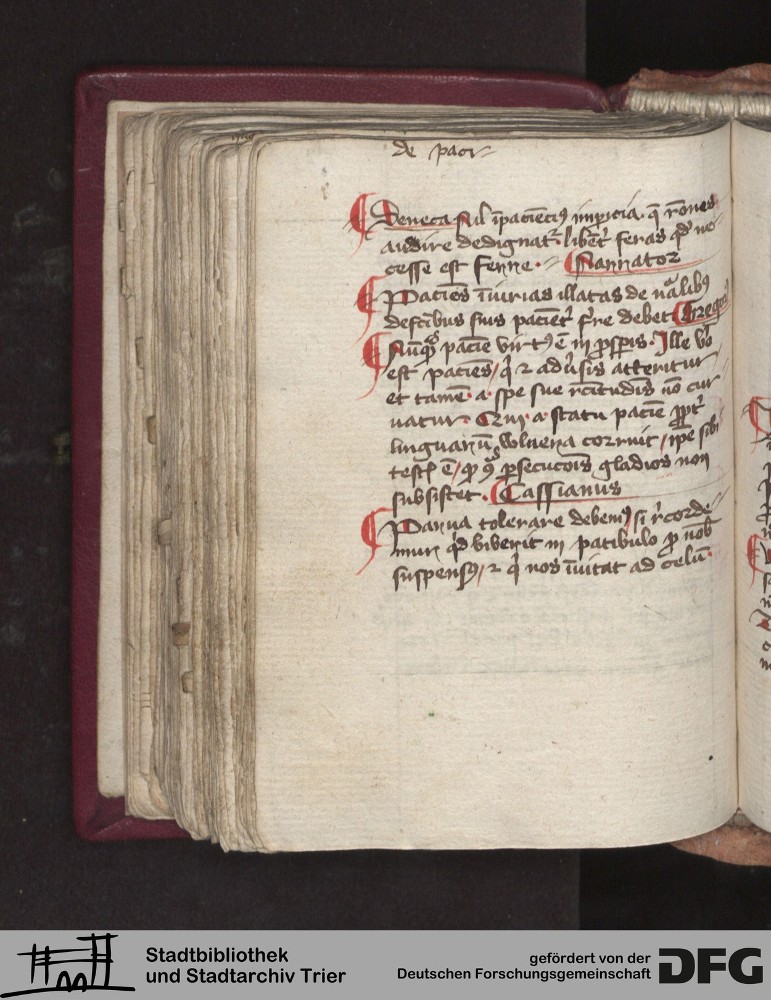 de paci
Seneca sul īpaciēcꝰ impicia. q̄ rōnes
audire dedignat᷑. libēt᷑ feras qd̓ ne
cesse est ferre. Narrator
Paciēs īiurias illatas de malibꝰ
suis paciēt᷑ f̓re debet Grego
paciē virtꝰ ē in ꝓspis. Ille v̓o
est paciēs / q̇ ⁊ adūsis atteritur
et tamē a spe sue rcītudīs nō cur
uatur. a statu paciē ꝓpt᷑
linguarū corruit / ip̄e sibi
testis ē / ꝙ ꝯ̄ ꝑsecucōis gladios non
subsistet. Cassianus
Parua tolerare debemꝰ si r̓corde
mur qd biberit in patibulo ꝓ nob̄
suspensꝰ / ⁊ q̇ nos īuitat ad celū.
Stadtbibliothek
und Stadtarchiv Trier
gefördert von der
Deutschen Forschungsgemeinschaft
DFG